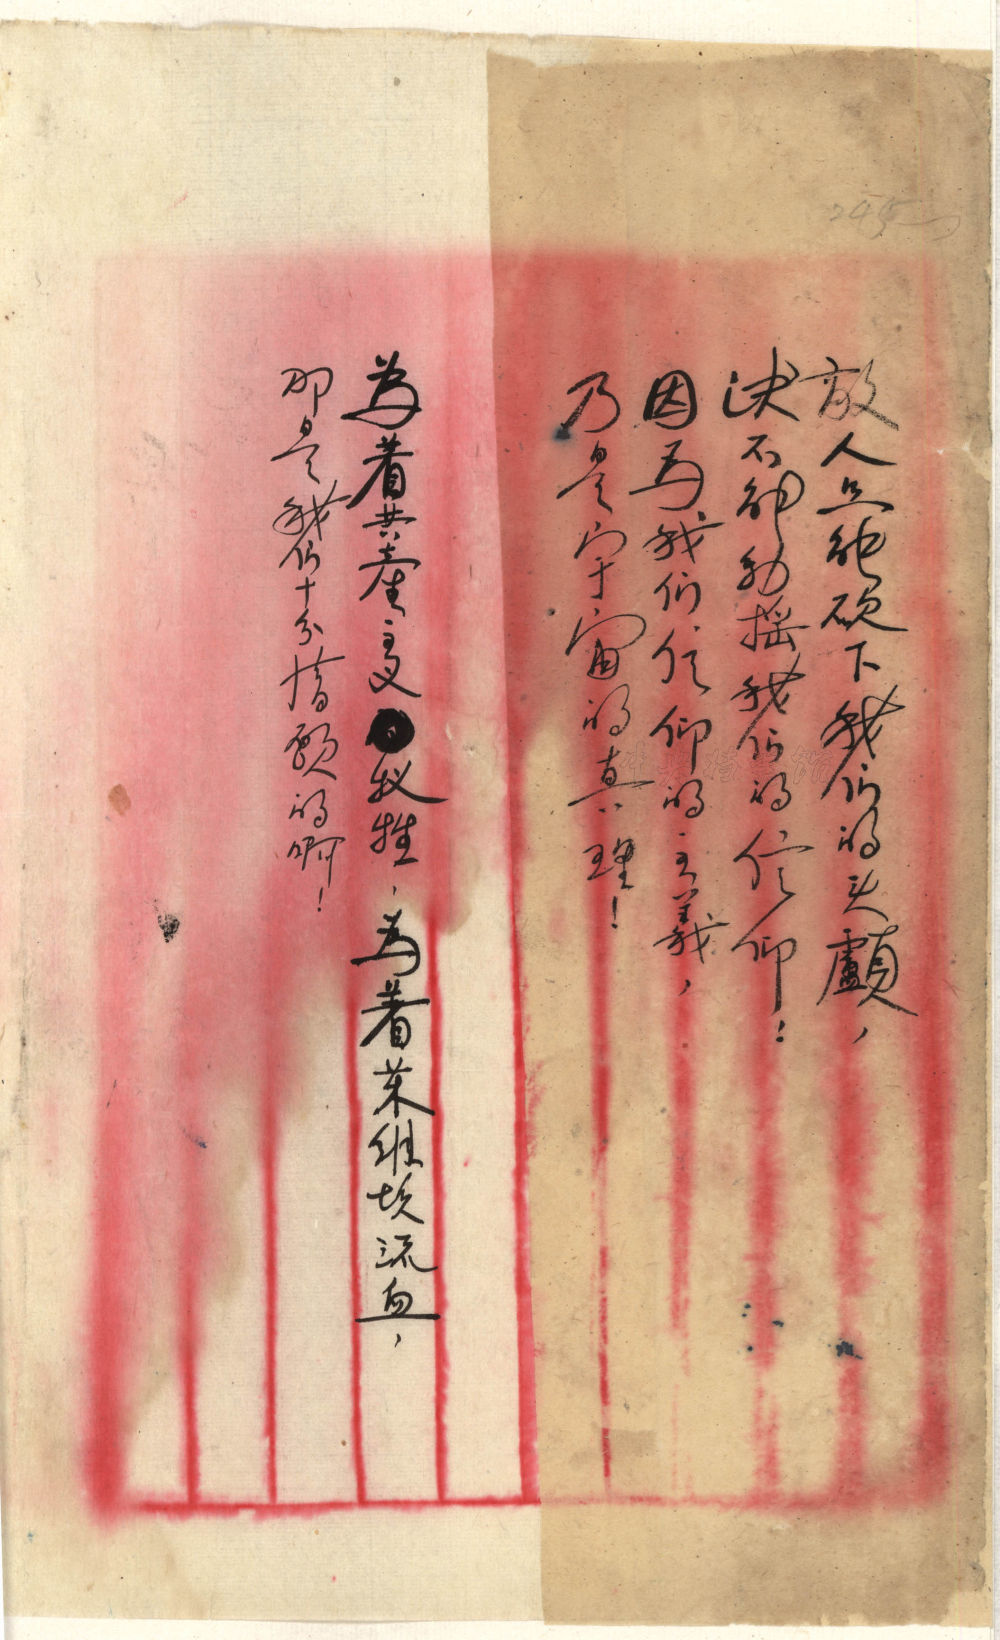 敌人只能砍下我们的头顱，
决不能动摇我们的信仰！
因为我们信仰的主義，
乃是宇宙的真理！
為着共產主义牺牲，為着苏维埃流血，
那是我们十分情愿的啊！